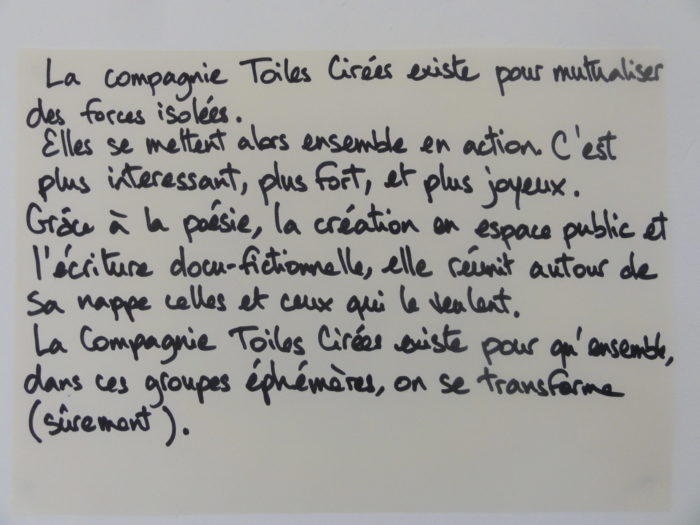 La compagnie Toiles Cirées existe pour mutualiser
des forces isolées.
Elles se mettent alors ensemble en action. C'est
plus interessant, plus fort, et plus joyeux.
Grâce à la poésie, la création en espace public et
l'écriture docu-fictionnelle, elle réunit autour de
sa nappe celles et ceux qui le veulent.
La Compagnie Toiles Cirées existe pour qu'ensemble,
dans ces groupes éphémères, on se transforme
(sûrement).